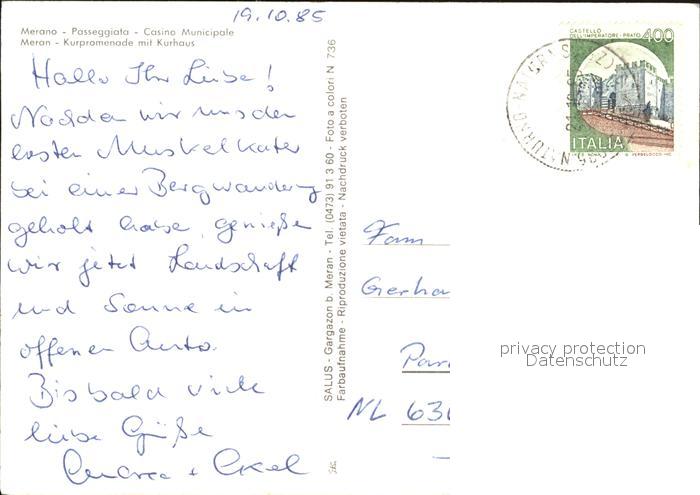 19.10.85
Merano - Passeggiata - Casino Municipale
Meran - Kurpromenade mit Kurhaus
Hallo Ihr Lieben!
Nachdem wir uns den
ersten Muskelkater
bei einer Bergwanderung
geholt habe, genießen
wir jetzt Landschaft
und Sonne im
offenen Auto.
Bis bald viele
liebe Grüße
Andrea + Axel
SALUS - Gargazon b. Meran - Tel. (0473) 91 3 60 - Foto a colori N 736
Farbaufnahme - Riproduzione vietata - Nachdruck verboten
CASTELLO
DELL'IMPERATORE - PRATO 400
ITALIA
Fam
Gerha
Par
NL 636
privacy protection
Datenschutz